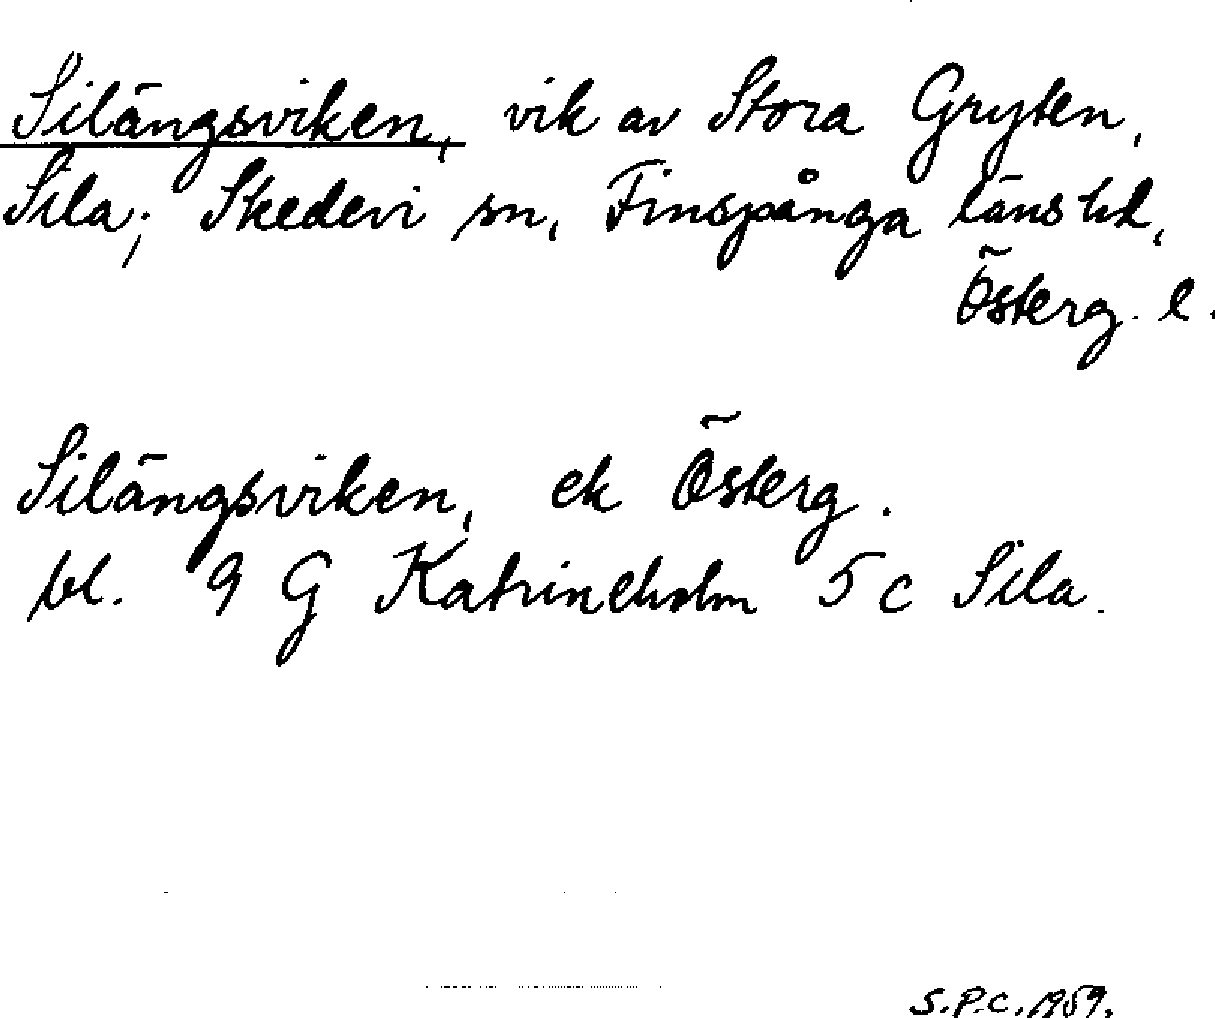 Silängsviken, vik av Stora Gryten,
Sila; Skedevi sn, Finspånga läns hd,
Österg. l.
Silängsviken, ek Österg.
bl. 9 G Katrineholm 5 c Sila.
S.P.C. 1959.